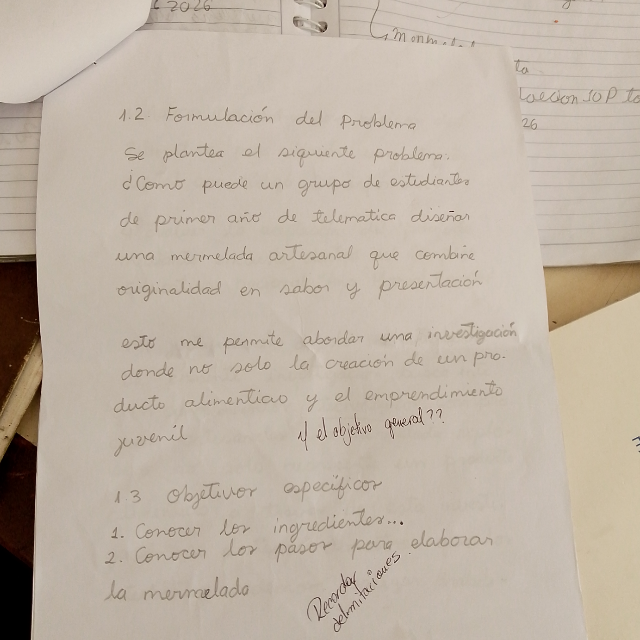 2026
1.2. Formulación del problema
Se plantea el siguiente problema.
¿Como puede un grupo de estudiantes
de primer año de telematica diseñar
una mermelada artesanal que combine
originalidad en sabor y presentación
esto me permite abordar una investigación
donde no solo la creación de un pro-
ducto alimenticio y el emprendimiento
juvenil
y el objetivo general??
1.3 Objetivos especificos
1. Conocer los ingredientes...
2. Conocer los pasos para elaborar
la mermelada
Recordar
delimitaciones.
26